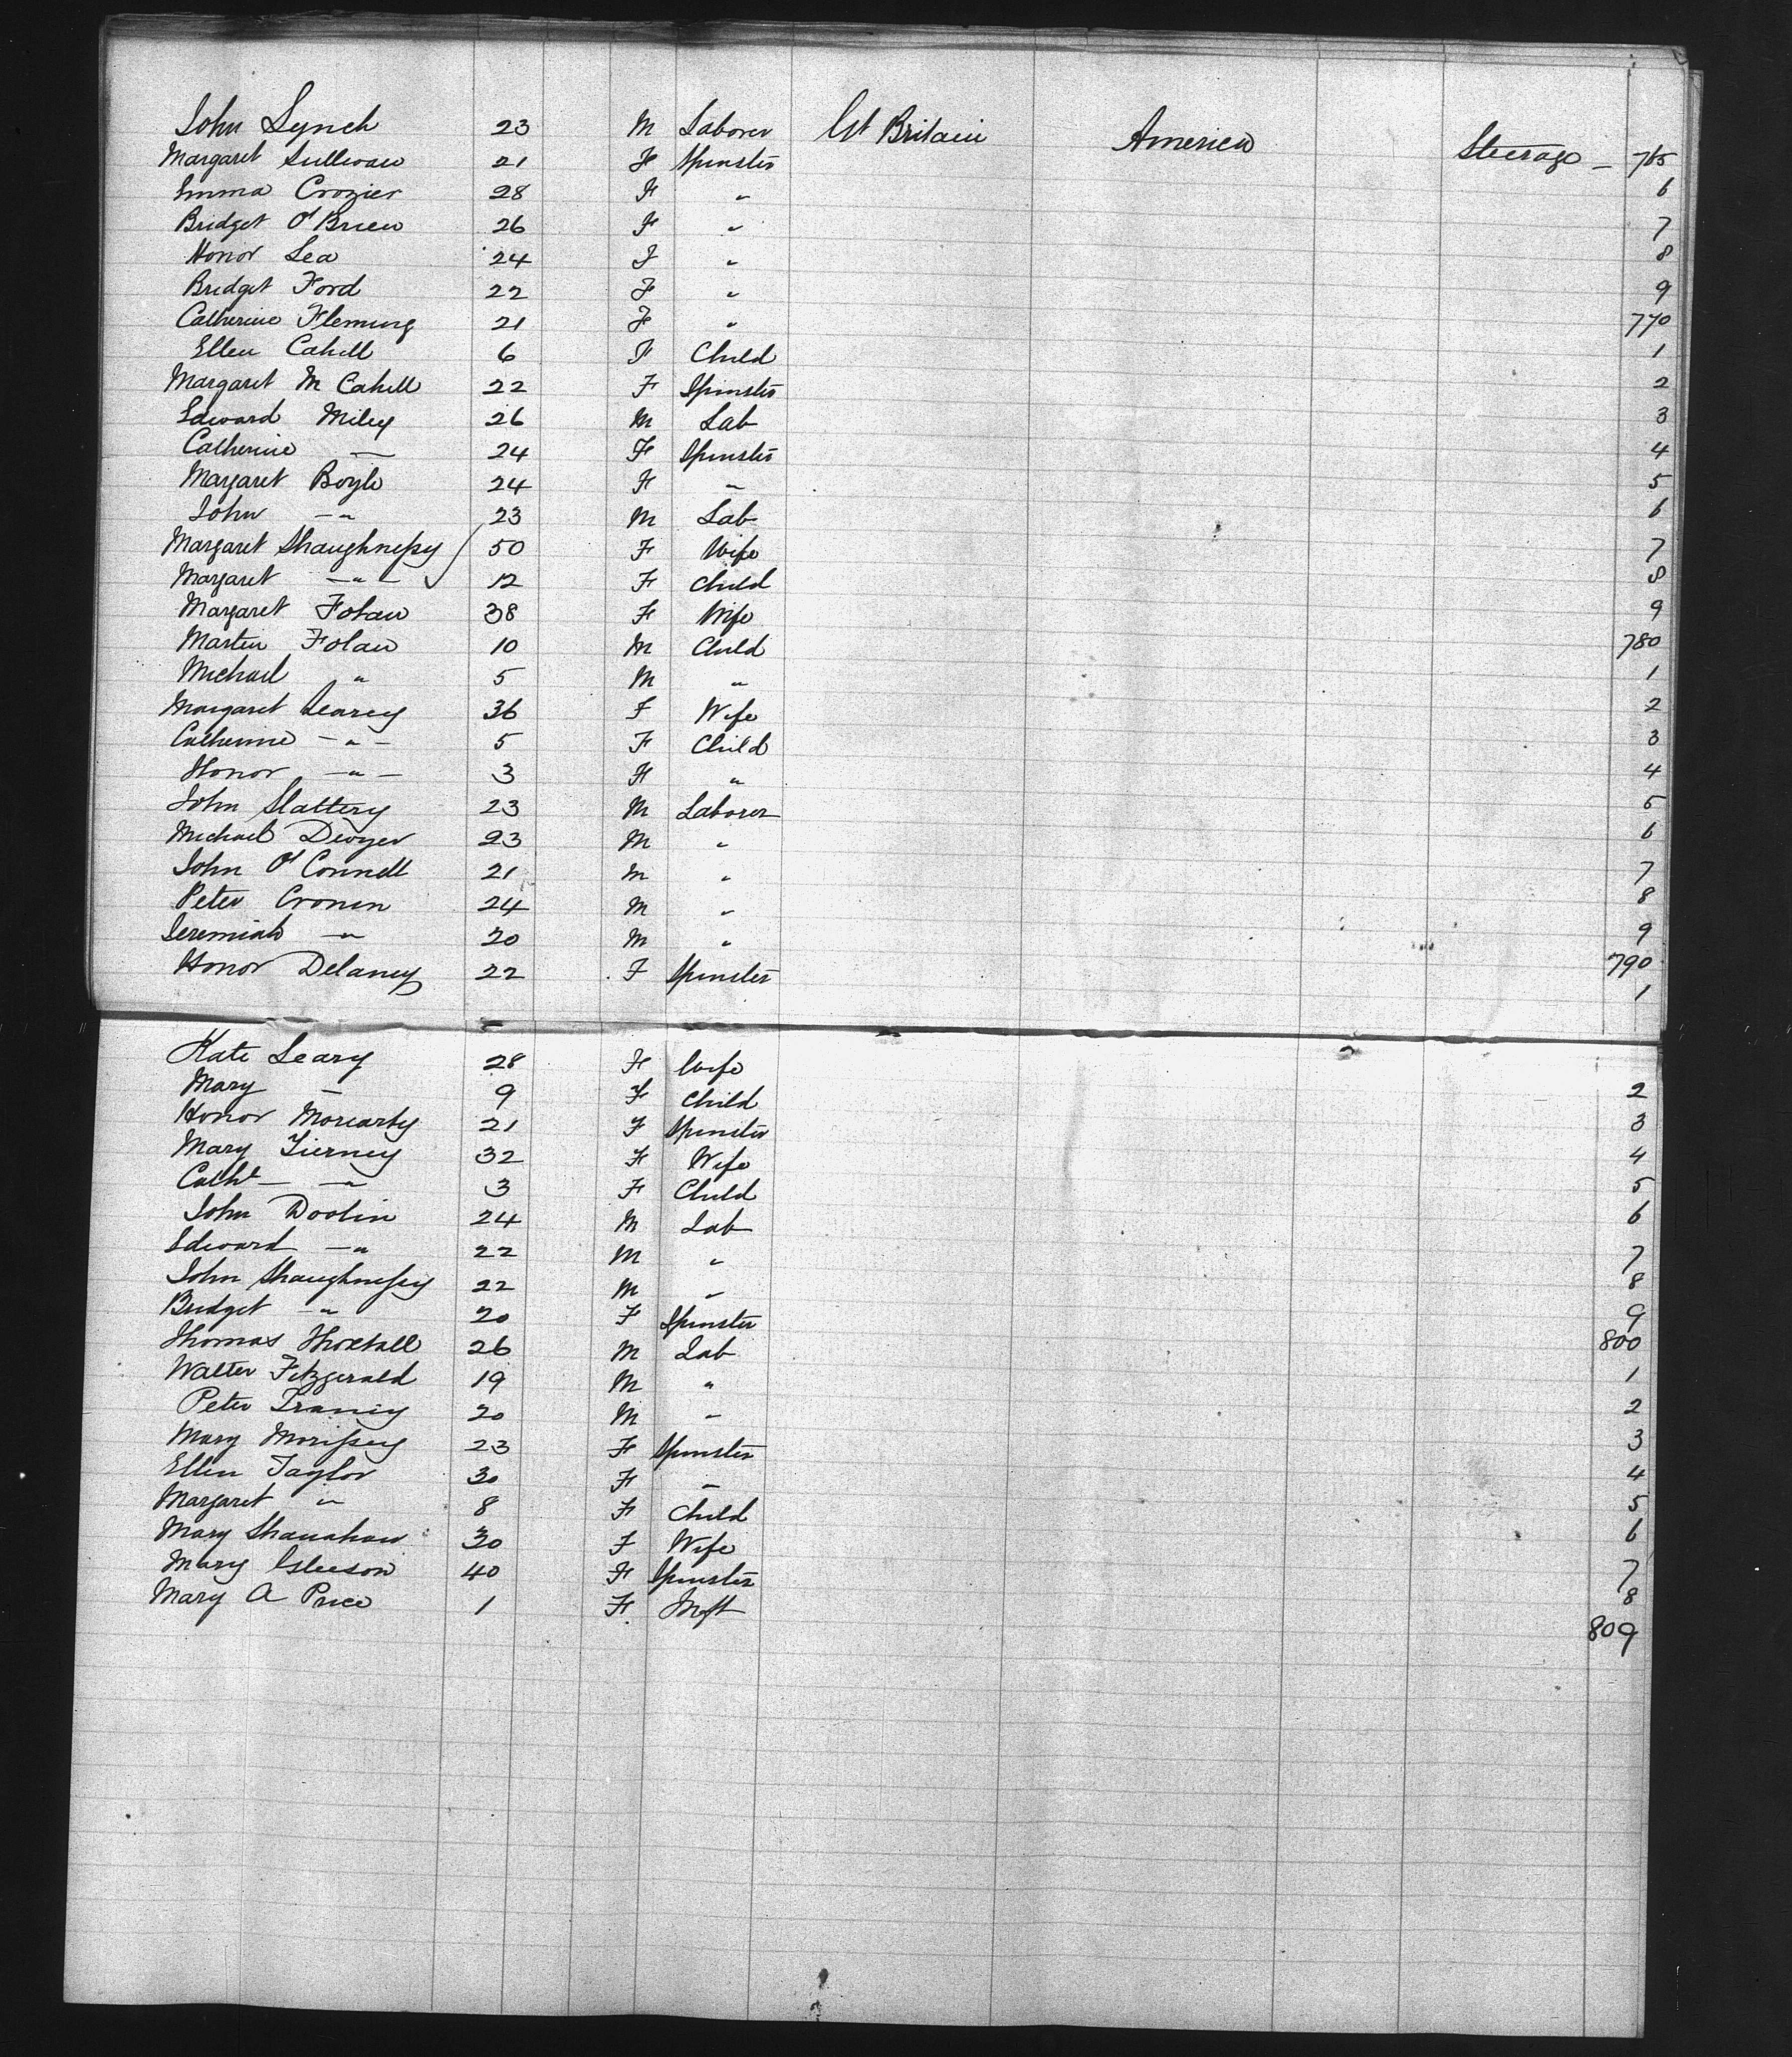 John Lynch 23 M Laborer Gt Britain America Steerage – 765
Margaret Sullivan 21 F Spinster 6
Emma Crozier 28 F " 7
Bridget O'Brien 26 F " 8
Honor Lea 24 F " 9
Bridget Ford 22 F " 770
Catherine Fleming 21 F " 1
Ellen Cahill 6 F Child 2
Margaret M Cahill 22 F Spinster 3
Edward Miley 26 M Lab 4
Catherine — 24 F Spinster 5
Margaret Boyle 24 F " 6
John " 23 M Lab 7
Margaret Shaughnessy 50 F Wife 8
Margaret — " — 12 F Child 9
Margaret Folan 38 F Wife 780
Martin Folan 10 M Child 1
Michael " 5 M " 2
Margaret Searcy 36 F Wife 3
Catherine — " — 5 F Child 4
Honor — " — 3 F " 5
John Slattery 23 M Laborer 6
Michael Dwyer 23 M " 7
John O'Connell 21 M " 8
Peter Cronen 24 M " 9
Jeremiah — " 20 M " 790
Honor Delaney 22 F Spinster 1
Kate Leary 28 F Wife 2
Mary — 9 F Child 3
Honor Moriarty 21 F Spinster 4
Mary Tierney 32 F Wife 5
Cath — " 3 F Child 6
John Doolin 24 M Lab 7
Edward — " 22 M " 8
John Shaughnessy 22 M " 9
Bridget — " 20 F Spinster 800
Thomas Thoxtall 26 M Lab 1
Walter Fitzgerald 19 M " 2
Peter 20 M " 3
Mary Morissey 23 F Spinster 4
Ellen Taylor 30 F " 5
Margaret " 8 F Child 6
Mary Shanahan 30 F Wife 7
Mary Gleeson 40 F Spinster 8
Mary A Price 1 F Inft 809